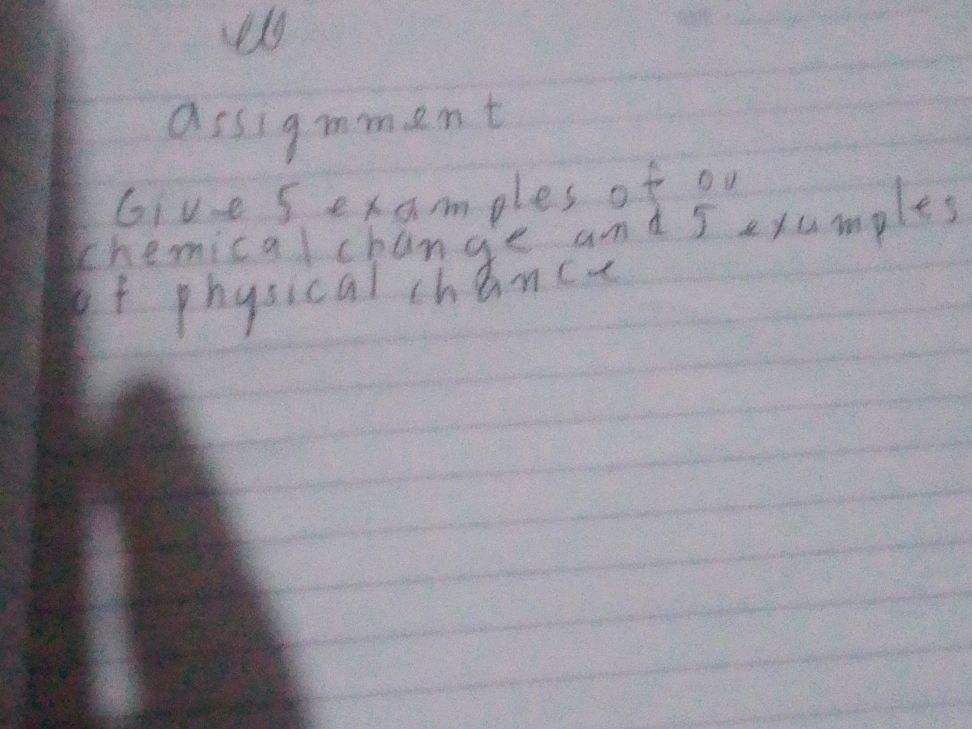 assignmment
Give 5 examples of
chemical change and 5 examples
of physical chance